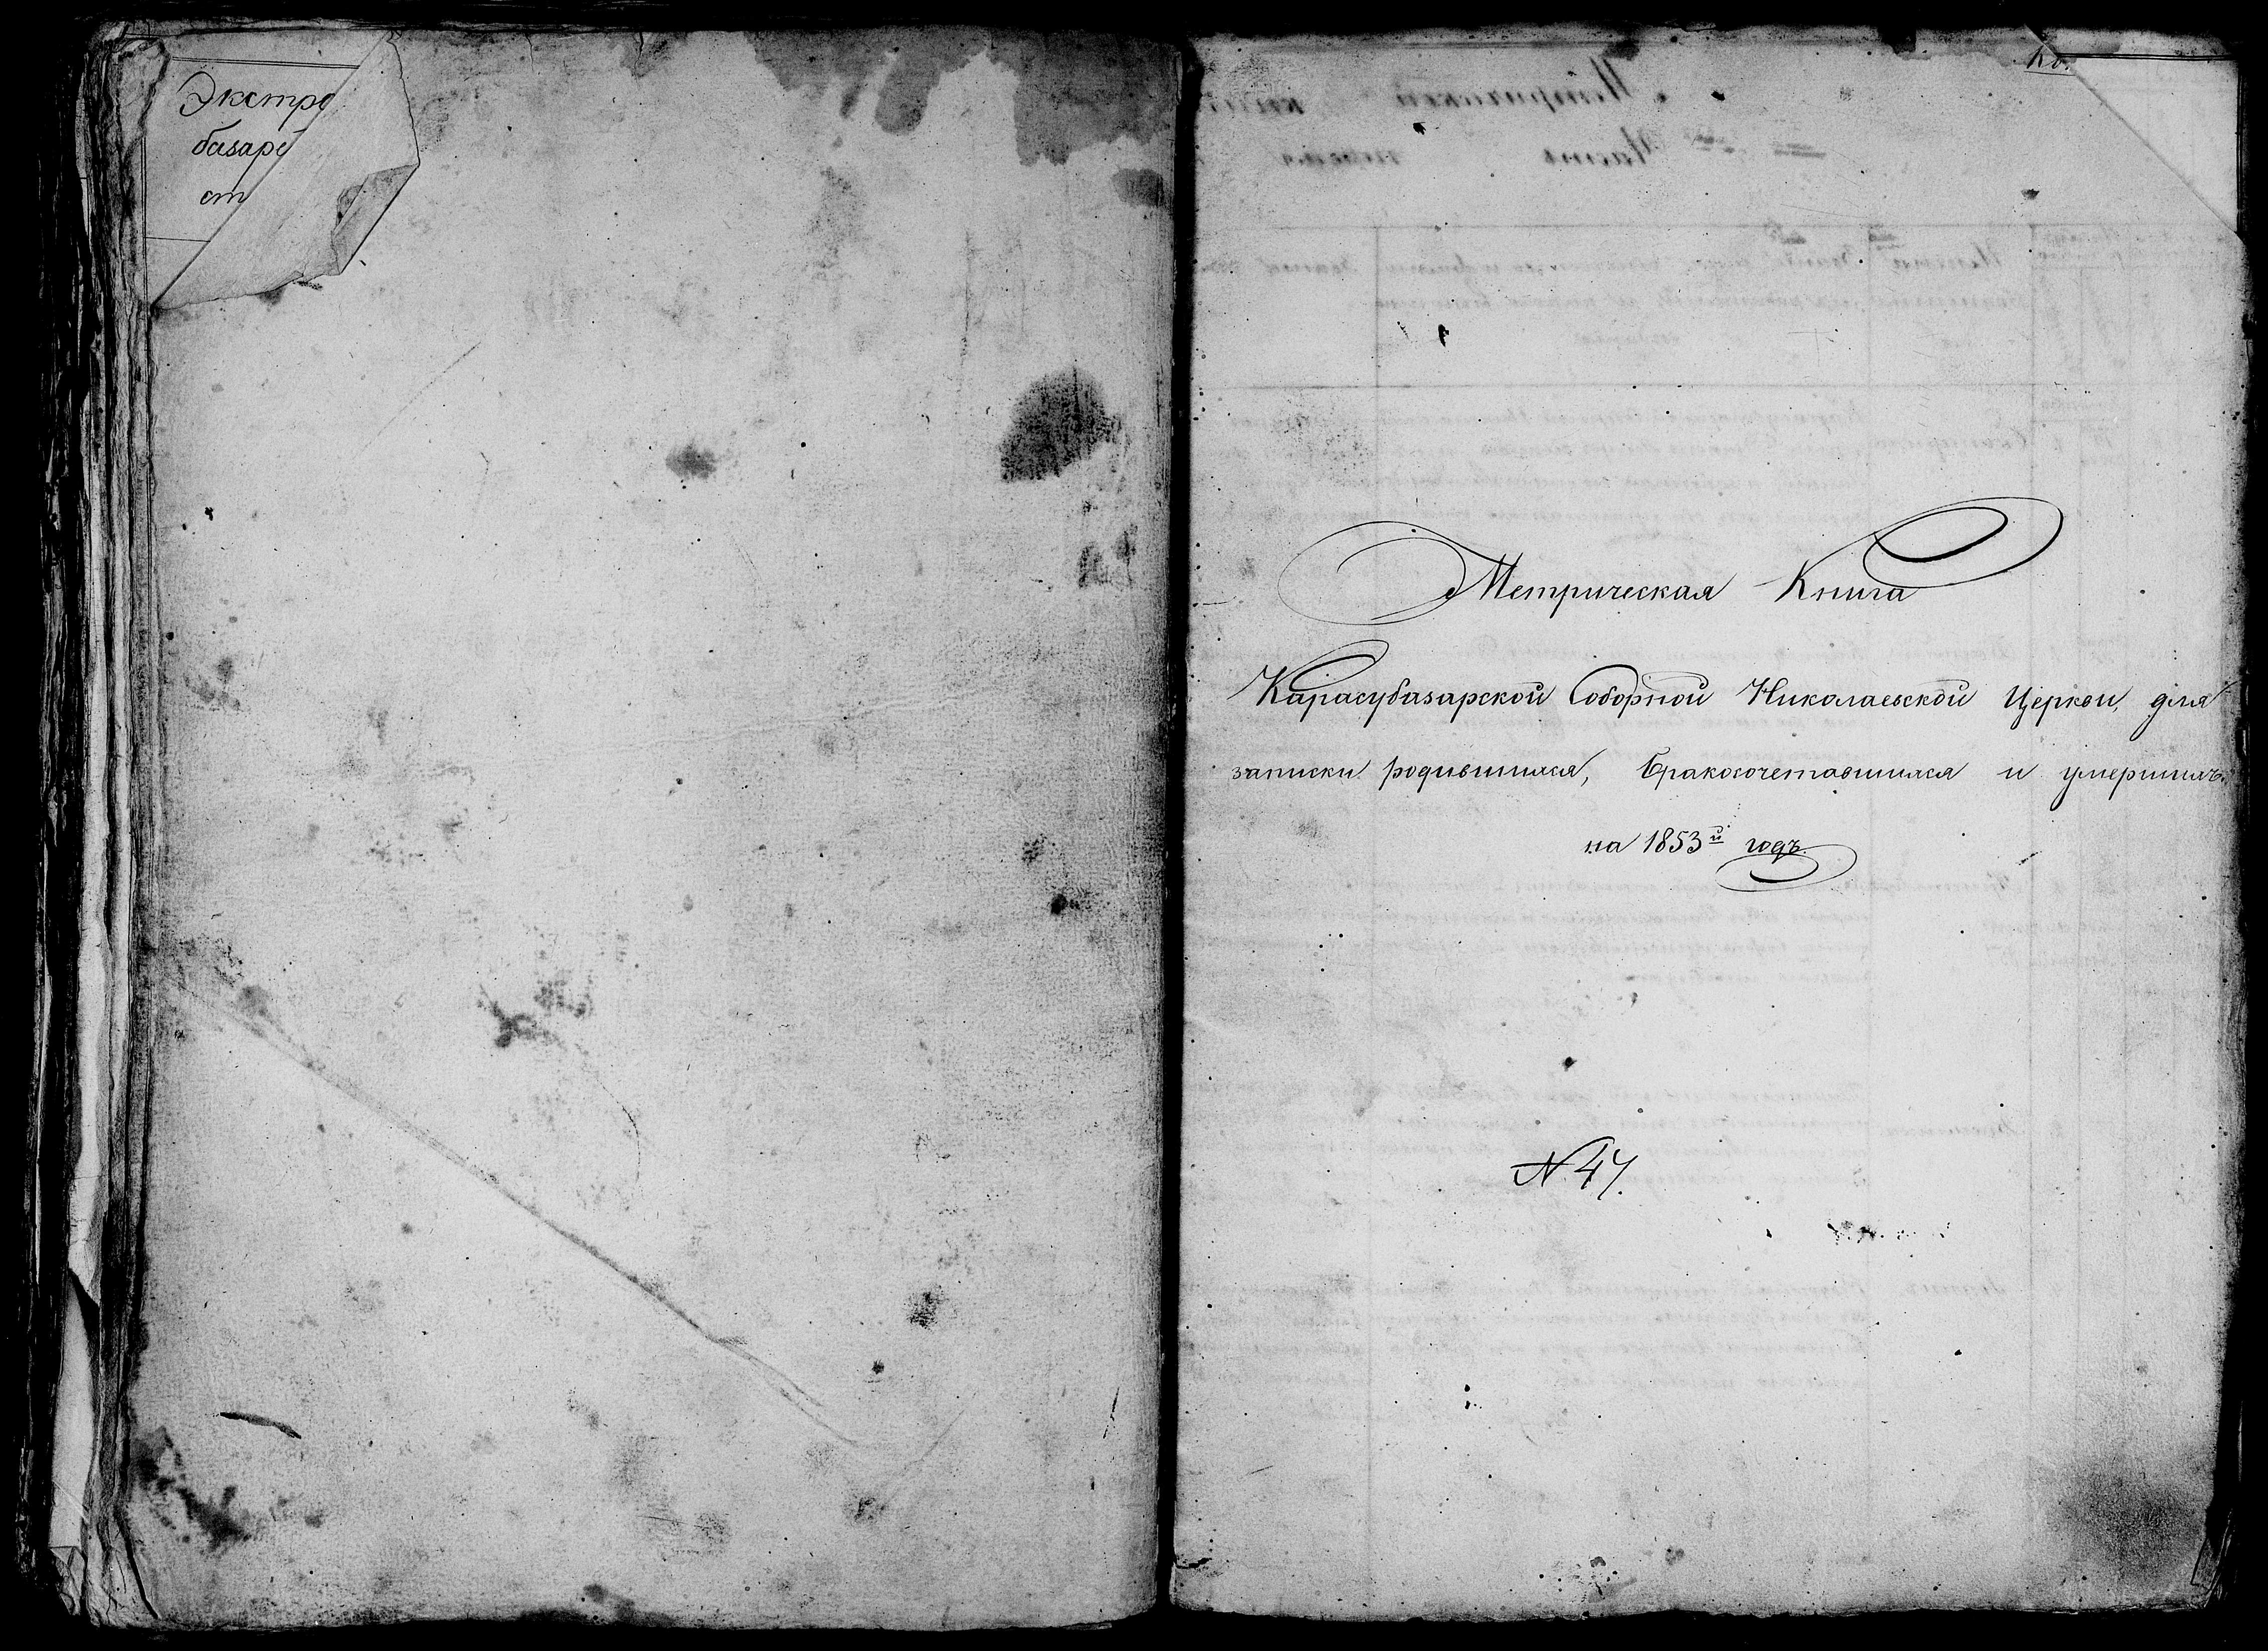 Экстра
базар
ст
Метрическая Книга
Карасубазарской Соборной Николаевской Церкви, для
записки родившихся, бракосочетавшихся и умершихъ,
на 1853й годъ.
N 47.